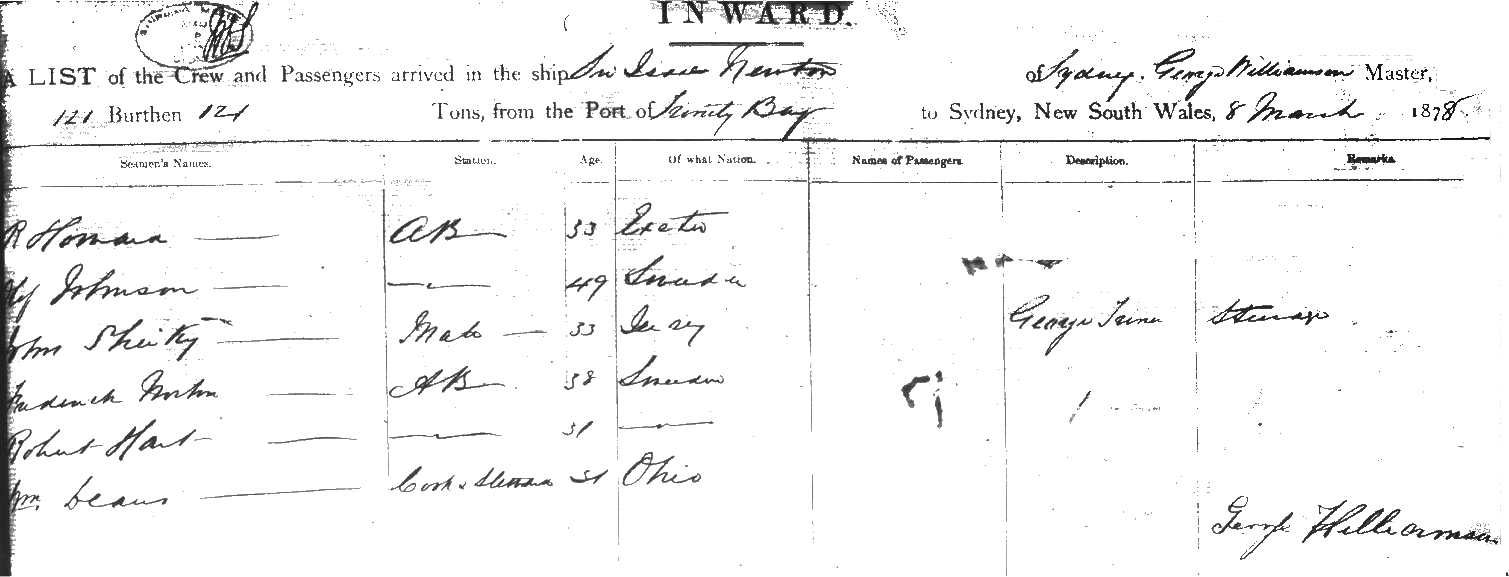 INWARD.
A LIST of the Crew and Passengers arrived in the ship Sir Isaac Newton of Sydney. George Williamson Master,
121 Burthen 121 Tons, from the Port of Trinity Bay to Sydney, New South Wales, 8 March 1878
Seamen's Names. Station. Age. Of what Nation. Names of Passengers. Description. Remarks.
R Howard — AB — 33 Exeter
Johnson — —„— 49 Sweden
John — Mate — 33 Jersey
George Steerage
Frederick Norton AB — 38 Sweden
Robert Hart — —„— 31 —„—
Wm. Deans — Cook & Steward 31 Ohio
George Williamson